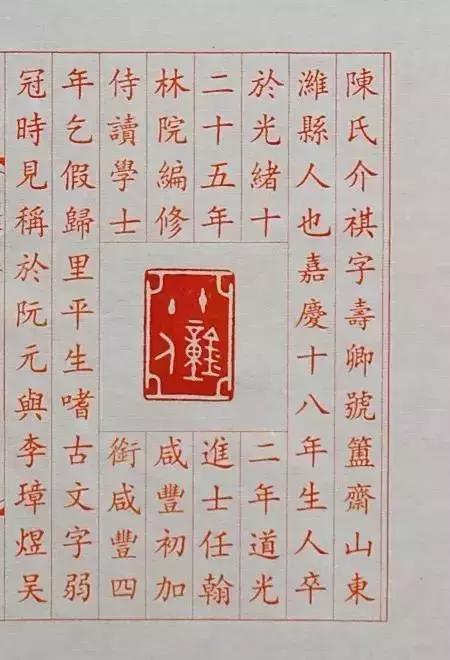 陳氏介祺字壽卿號簠齋山東
濰縣人也嘉慶十八年生人卒
於光緒十二年道光
二十五年進士任翰
林院編修咸豐初加
侍讀學士銜咸豐四
年乞假歸里平生嗜古文字弱
冠時見稱於阮元與李璋煜吳